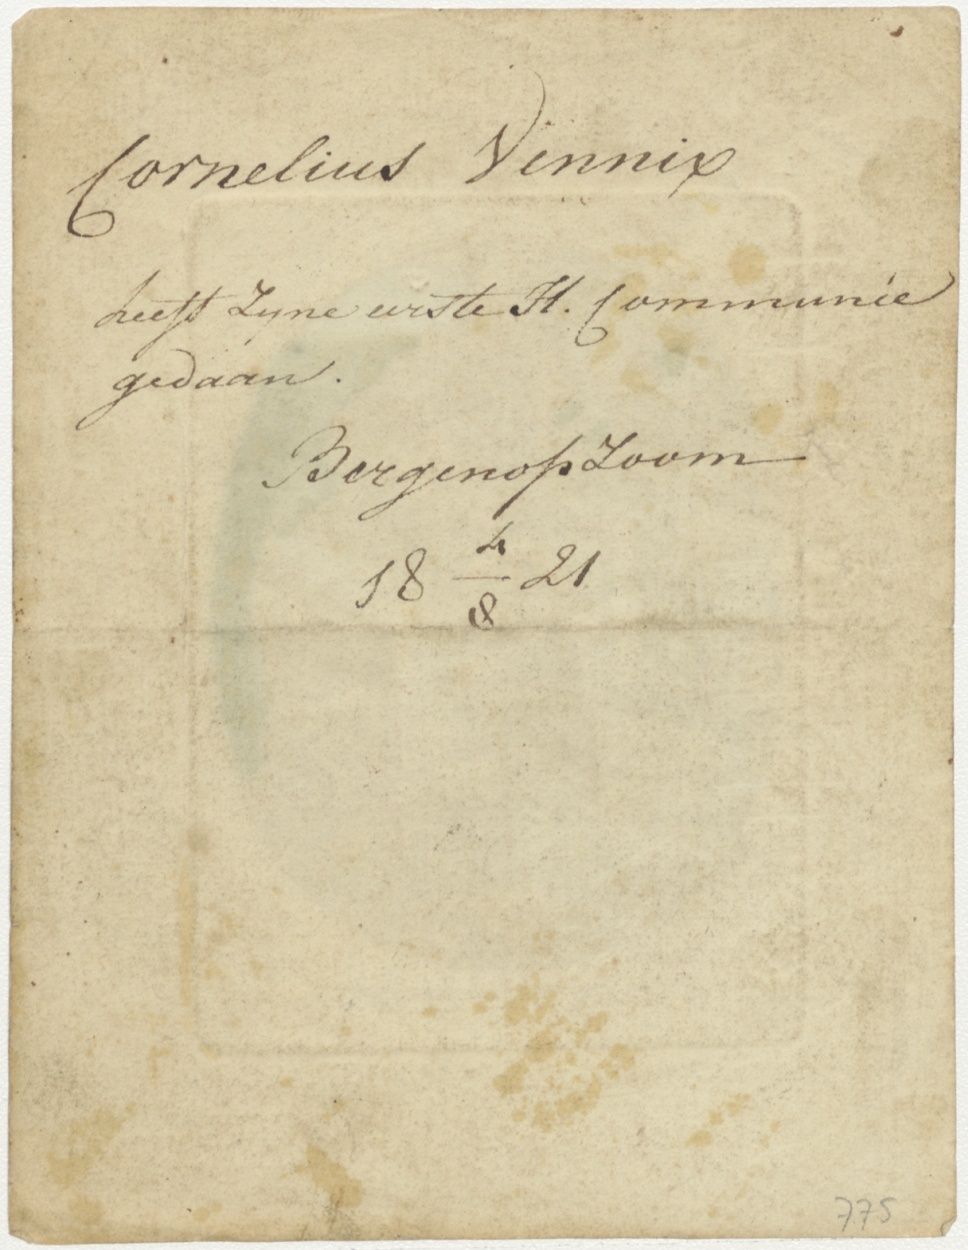 Cornelius Vennix
heeft Zyne eerste H. Communie
gedaan.
Bergenop Zoom
18 4/8 21
775